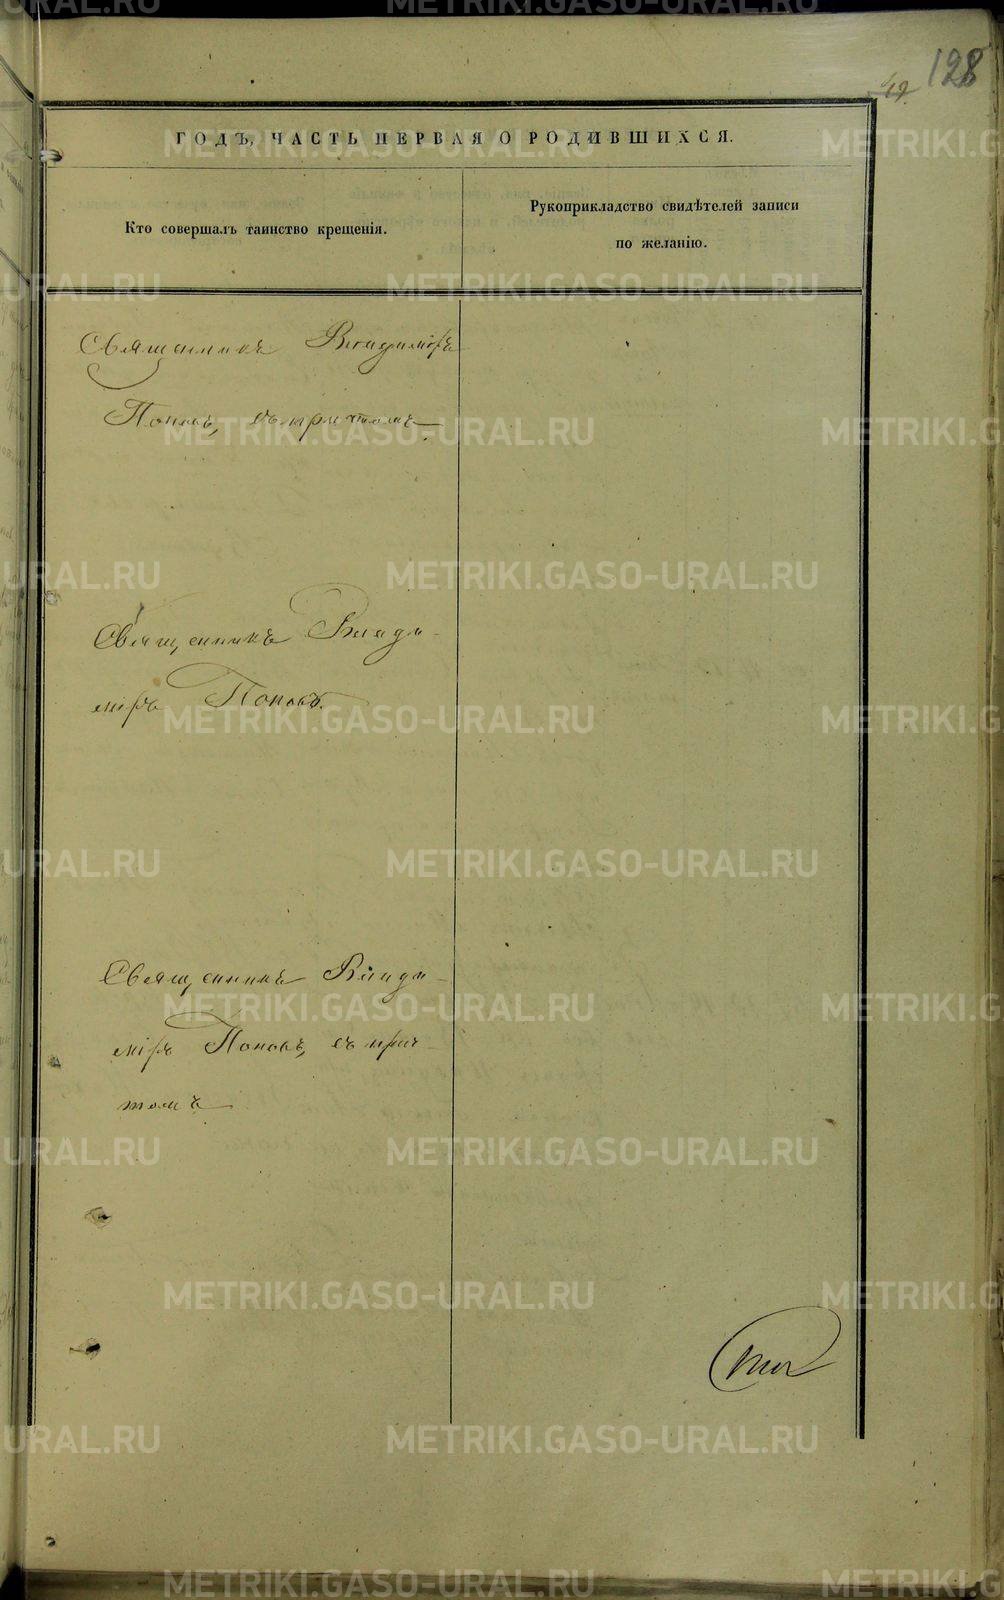 128
19.
ГОДЪ, ЧАСТЬ ПЕРВАЯ О РОДИВШИХСЯ.
Кто совершалъ таинство крещенія.
Рукоприкладство свидѣтелей записи
по желанію.
Священникъ Владиміръ
Поповъ, съ причтомъ
Священникъ Влади-
міръ Поповъ.
Священникъ Влади-
міръ Поповъ, съ прич-
томъ
METRIKI.GASO-URAL.RU